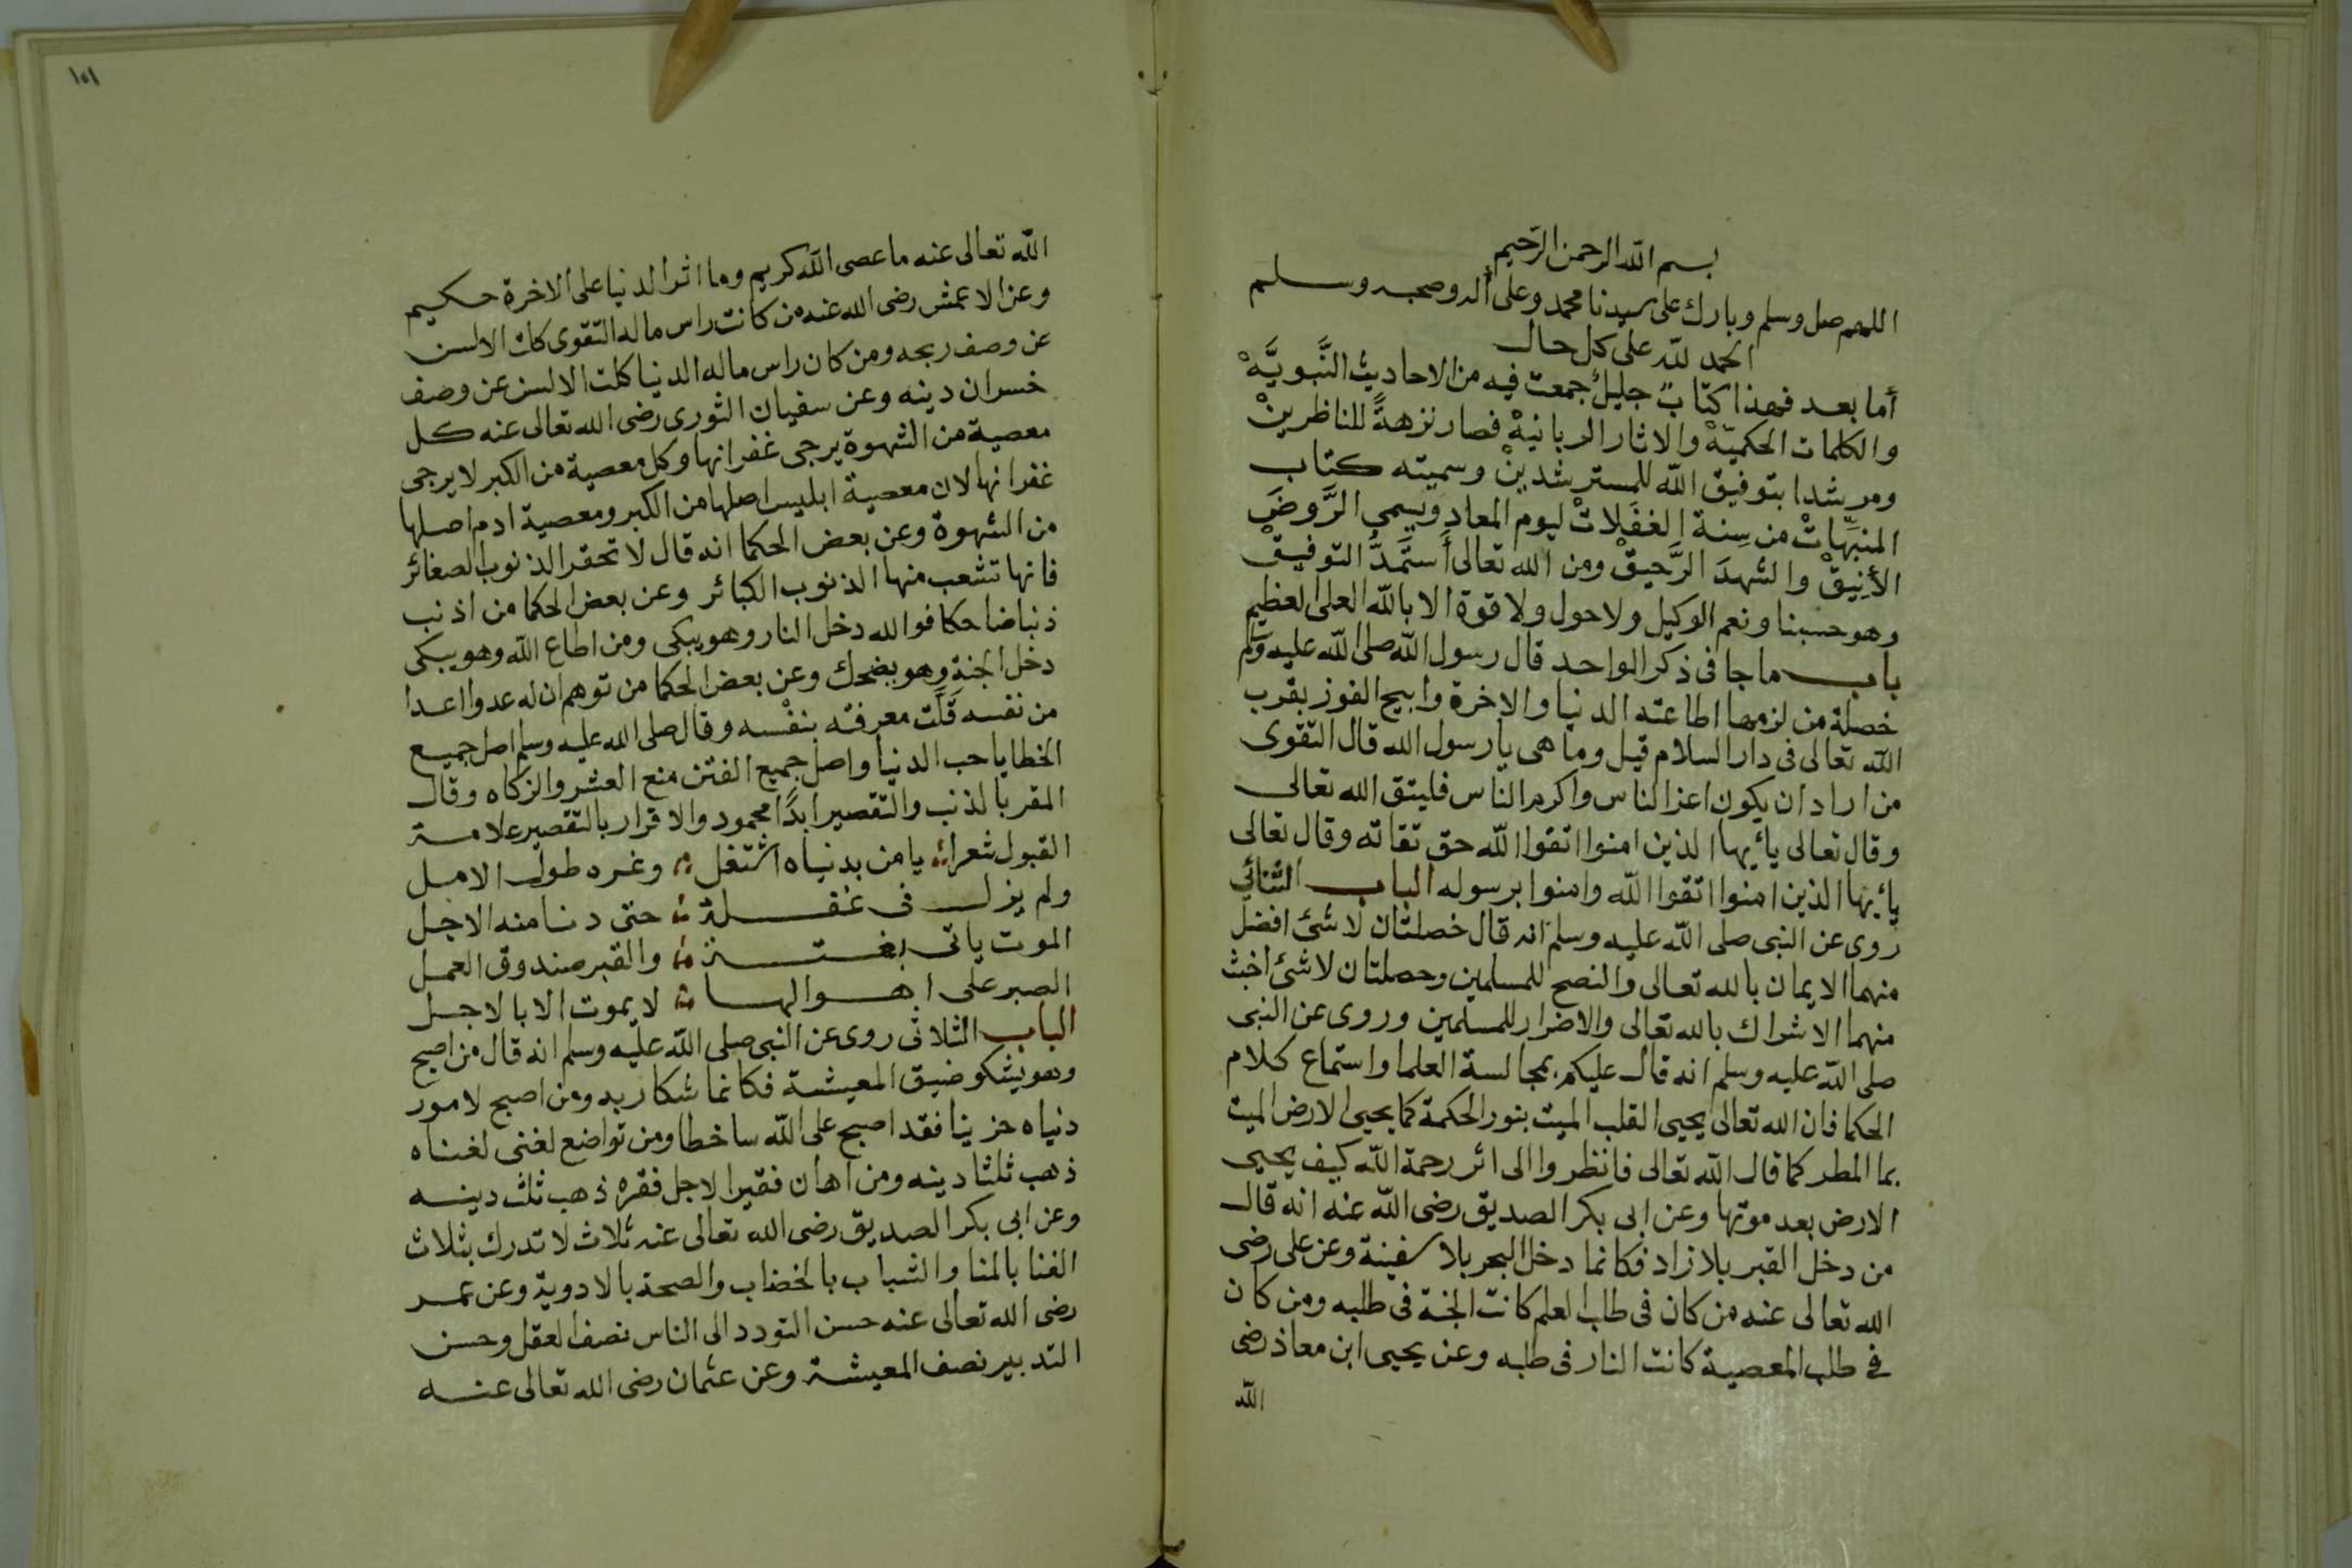 بسم الله الرحمن الرحيم
اللهم صل وسلم وبارك على سيدنا محمد وعلى أله وصحبه وسلم
الحمد لله على كل حال
أما بعد فهذا كتابٌ جليلٌ جمعت فيه من الاحاديث النَّبويَّهْ
والكلمات الحكميّهْ والاثار الربانيهْ فصار نزهةً للناظرينْ
ومرشدا بتوفيق الله للمسترشدينْ وسميته كتاب
المنبِّهاتْ من سِنة الغفلاتْ ليوم المعاد ويسمى الرَّوضَ
الأنِيقْ والشهدَ الرَّحيقْ ومن الله تعالى أستمدُّ التوفيقْ
وهو حسبنا ونعم الوكيل ولا حول ولا قوة الا بالله العلى العظيم
باب ما جا فى ذكر الواحد قال رسول الله صلى الله عليه وسلم
خصلة من لزمها اطاعته الدنيا والاخرة وابيح الفوز بقرب
الله تعالى فى دار السلام قيل وما هى يا رسول الله قال التقوى
من اراد ان يكون اعز الناس واكرم الناس فليتق الله تعالى
وقال تعالى يأيها الذين امنوا اتقوا الله حق تقاته وقال تعالى
يأيها الذين امنوا اتقوا الله وامنوا برسوله الباب الثنائي
روى عن النبى صلى الله عليه وسلم انه قال خصلتان لا شئ افضل
منهما الايمان بالله تعالى والنصح للمسلمين وحصلتان لا شئ اخبث
منهما الاشراك بالله تعالى والاضرار للمسلمين وروى عن النبى
صلى الله عليه وسلم انه قال عليكم بمجالسة العلما واستماع كلام
الحكما فان الله تعالى يحيى القلب الميت بنور الحكمة كما يحيى الارض الميت
بما المطر كما قال الله تعالى فانظروا الى اثر رحمة الله كيف يحيى
الارض بعد موتها وعن ابى بكر الصديق رضى الله عنه انه قال
من دخل القبر بلا زاد فكانما دخل البحر بلا سفينة وعن على رضى
الله تعالى عنه من كان فى طلب العلم كانت الجنة فى طلبه ومن كان
فى طلب المعصية كانت النار فى طلبه وعن يحيى ابن معاذ رضى
الله
١٥١
الله تعالى عنه ما عصى الله كريم وما اثر الدنيا على الاخرة حكيم
وعن الاعمش رضى الله عنه من كانت راس ماله التقوى كلت الالسن
عن وصف ربحه ومن كان راس ماله الدنيا كلت الالسن عن وصف
خسران دينه وعن سفيان الثورى رضى الله تعالى عنه كل
معصية من الشهوة يرجى غفرانها وكل معصية من الكبر لا يرجى
غفرانها لان معصية ابليس اصلها من الكبر ومعصية ادم اصلها
من الشهوة وعن بعض الحكما انه قال لا تحقر الذنوب الصغائر
فانها تشعب منها الذنوب الكبائر وعن بعض الحكما من اذنب
ذنبا ضاحكا فوالله دخل النار وهو يبكى ومن اطاع الله وهو يبكى
دخل الجنة وهو يضحك وعن بعض الحكما من توهم ان له عدوا اعدا
من نفسه قَلَّت معرفته بنفْسه وقال صلى الله عليه وسلم اصل جميع
الخطايا حب الدنيا واصل جميع الفتن منع العشر والزكاه وقال
المقر بالذنب والتقصير ابدًا محمود والاقرار بالتقصير علامة
القبول شعرا يا من بدنياه اشتغل وغره طول الامل
ولم يزل فى غفلة حتى دنا منه الاجل
الموت ياتى بغتة والقبر صندوق العمل
الصبر على اهوالها لا يموت الا بالاجل
الباب الثلاثى روى عن النبى صلى الله عليه وسلم انه قال من اصبح
وهو يشكو ضيق المعيشة فكانما شكا ربه ومن اصبح لامور
دنياه حزينا فقد اصبح على الله ساخطا ومن تواضع لغنى لغناه
ذهب ثلثا دينه ومن اهان فقيرا لاجل فقره ذهب ثلث دينه
وعن ابى بكر الصديق رضى الله تعالى عنه ثلاث لا تدرك بثلاث
الغنا بالمنا والشباب بالخضاب والصحة بالادوية وعن عمر
رضى الله تعالى عنه حسن التودد الى الناس نصف العقل وحسن
التدبير نصف المعيشة وعن عثمان رضى الله تعالى عنه